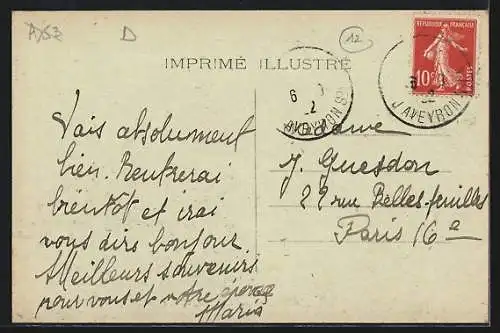 A/53
D
12
IMPRIMÉ ILLUSTRÉ
REPUBLIQUE FRANÇAISE
10c
POSTES
6
2
AVEYRON
6
32
AVEYRON
Vais absolument
bien. Rentrerai
bientôt et irai
vous dire bonjour.
Meilleurs souvenirs
pour vous et votre
Maria
Madame
J. Guesdon
22 rue Belles-feuilles
Paris 16e